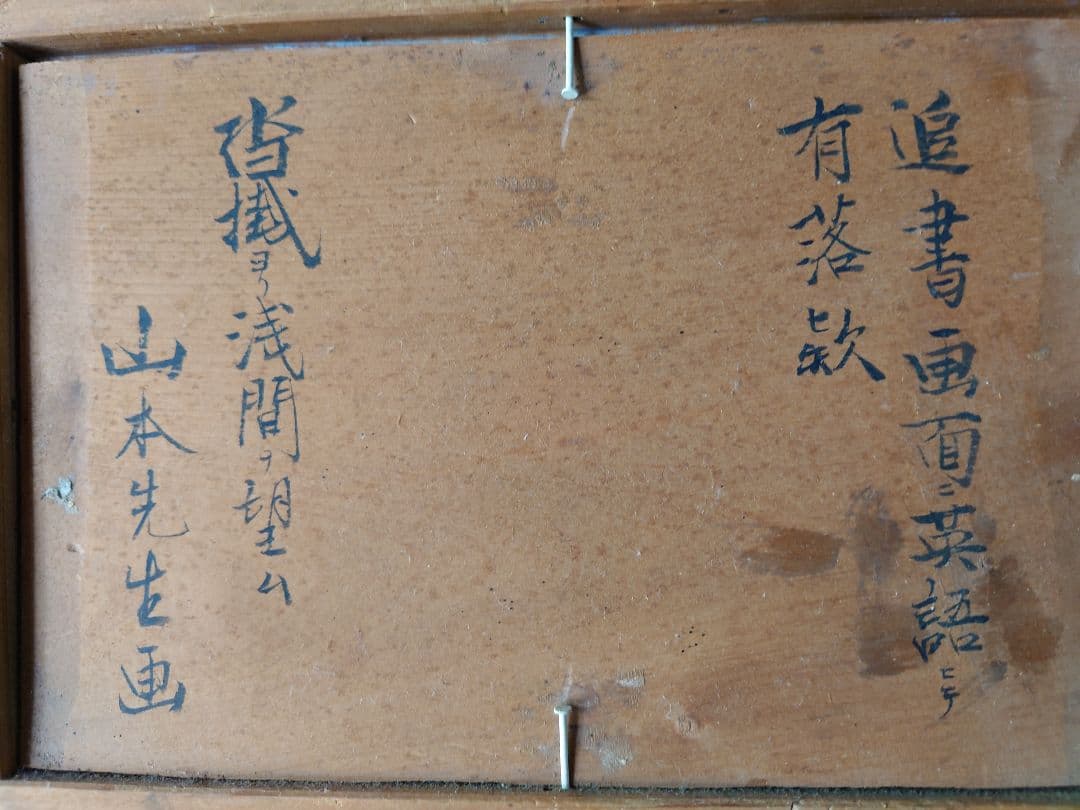 追書画面ニ英語ニテ
有落款
沓掛ヨリ浅間ヲ望ム
山本先生画